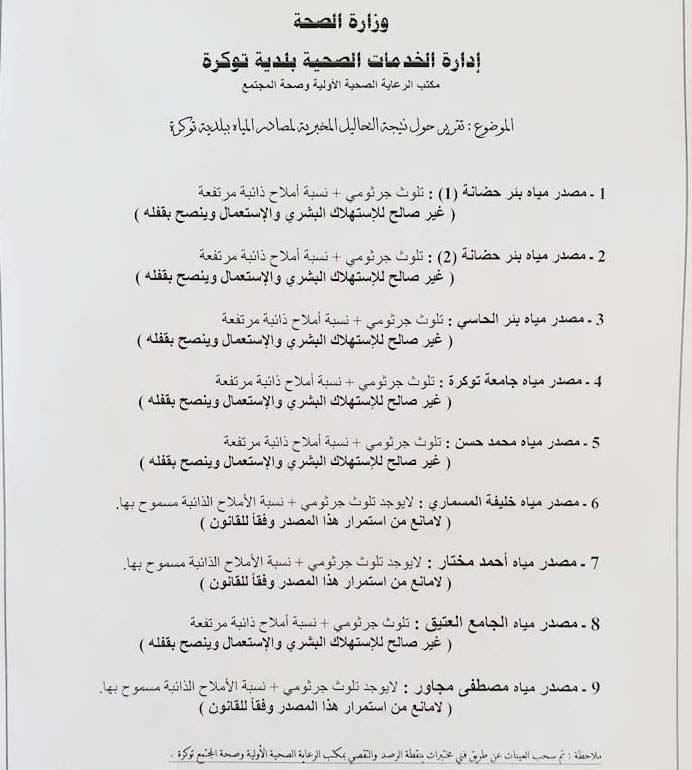 وزارة الصحة
إدارة الخدمات الصحية بلدية توكرة
مكتب الرعاية الصحية الأولية وصحة المجتمع
الموضوع : تقرير حول نتيجة التحاليل المخبرية لمصادر المياه ببلدية توكرة
1 ـ مصدر مياه بئر حضانة (1) : تلوث جرثومي + نسبة أملاح ذائبة مرتفعة
( غير صالح للإستهلاك البشري والإستعمال وينصح بقفله )
2 ـ مصدر مياه بئر حضانة (2) : تلوث جرثومي + نسبة أملاح ذائبة مرتفعة
( غير صالح للإستهلاك البشري والإستعمال وينصح بقفله )
3 ـ مصدر مياه بئر الحاسي : تلوث جرثومي + نسبة أملاح ذائبة مرتفعة
( غير صالح للإستهلاك البشري والإستعمال وينصح بقفله )
4 ـ مصدر مياه جامعة توكرة : تلوث جرثومي + نسبة أملاح ذائبة مرتفعة
( غير صالح للإستهلاك البشري والإستعمال وينصح بقفله )
5 ـ مصدر مياه محمد حسن : تلوث جرثومي + نسبة أملاح ذائبة مرتفعة
( غير صالح للإستهلاك البشري والإستعمال وينصح بقفله )
6 ـ مصدر مياه خليفة المسماري : لايوجد تلوث جرثومي + نسبة الأملاح الذائبة مسموح بها.
( لامانع من استمرار هذا المصدر وفقاً للقانون )
7 ـ مصدر مياه أحمد مختار : لايوجد تلوث جرثومي + نسبة الأملاح الذائبة مسموح بها.
( لامانع من استمرار هذا المصدر وفقاً للقانون )
8 ـ مصدر مياه الجامع العتيق : تلوث جرثومي + نسبة أملاح ذائبة مرتفعة
( غير صالح للإستهلاك البشري والإستعمال وينصح بقفله )
9 ـ مصدر مياه مصطفى مجاور : لايوجد تلوث جرثومي + نسبة الأملاح الذائبة مسموح بها.
( لامانع من استمرار هذا المصدر وفقاً للقانون )
ملاحظة : تم سحب العينات عن طريق فني مختبرات بنقطة الرصد والتقصي بمكتب الرعاية الصحية الأولية وصحة المجتمع توكرة .